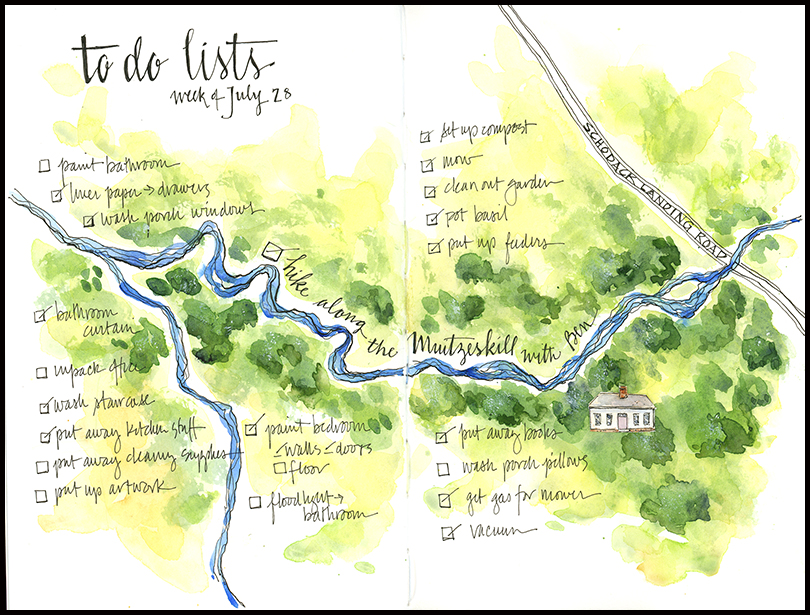 to do lists
week of July 28
paint bathroom
liner paper → drawers
wash porch windows
hike along the Muitzeskill with Ben
bathroom
curtain
unpack office
wash staircase
put away kitchen stuff
put away cleaning supplies
put up artwork
paint bedroom
walls doors
floor
floodlight →
bathroom
set up compost
mow
clean out garden
pot basil
put up feeders
SCHODACK LANDING ROAD
put away books
wash porch pillows
get gas for mower
vacuum